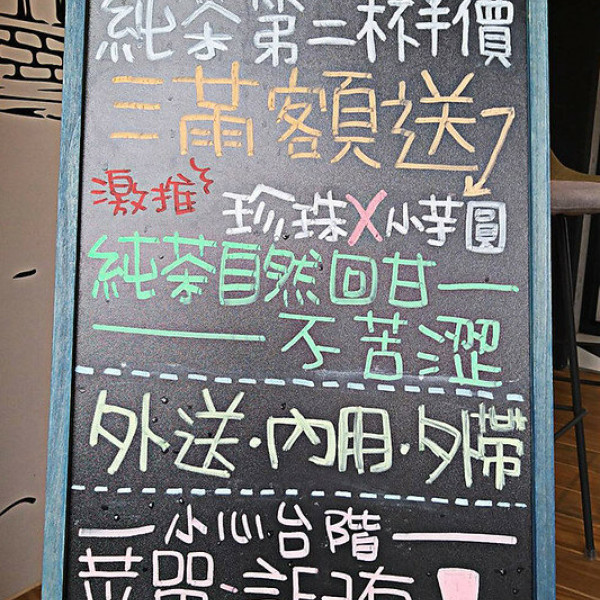 純茶第二杯半價
三滿額送
激推 珍珠X小芋圓
純茶自然回甘
不苦澀
外送·內用·外帶
小心台階
菜單